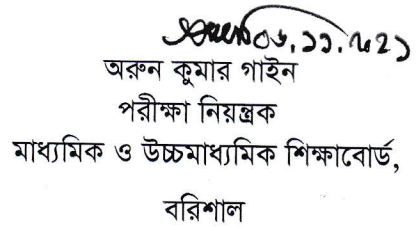 ০৮.১১.২০২১
অরুন কুমার গাইন
পরীক্ষা নিয়ন্ত্রক
মাধ্যমিক ও উচ্চমাধ্যমিক শিক্ষাবোর্ড,
বরিশাল